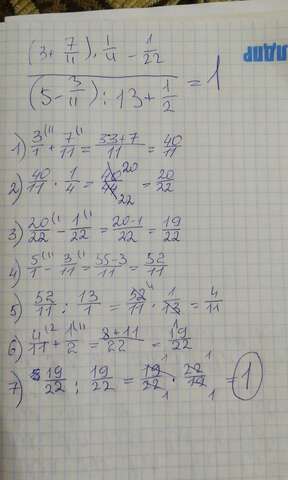 (3+7/11)·1/4 − 1/22
(5−3/11):13+1/2 =1
ЛДПР
1) 3/1 + 7/11 = 33+7/11 = 40/11
2) 40/11 · 1/4 = 40/44 20 22 = 20/22
3) 20/22 − 1/22 = 20-1/22 = 19/22
4) 5/1 − 3/11 = 55-3/11 = 52/11
5) 52/11 : 13/1 = 52/11 4 · 1/13 = 4/11
6) 4/11 + 1/2 = 8+11/22 = 19/22
7) 19/22 : 19/22 = 19/22 · 22/19 = 1